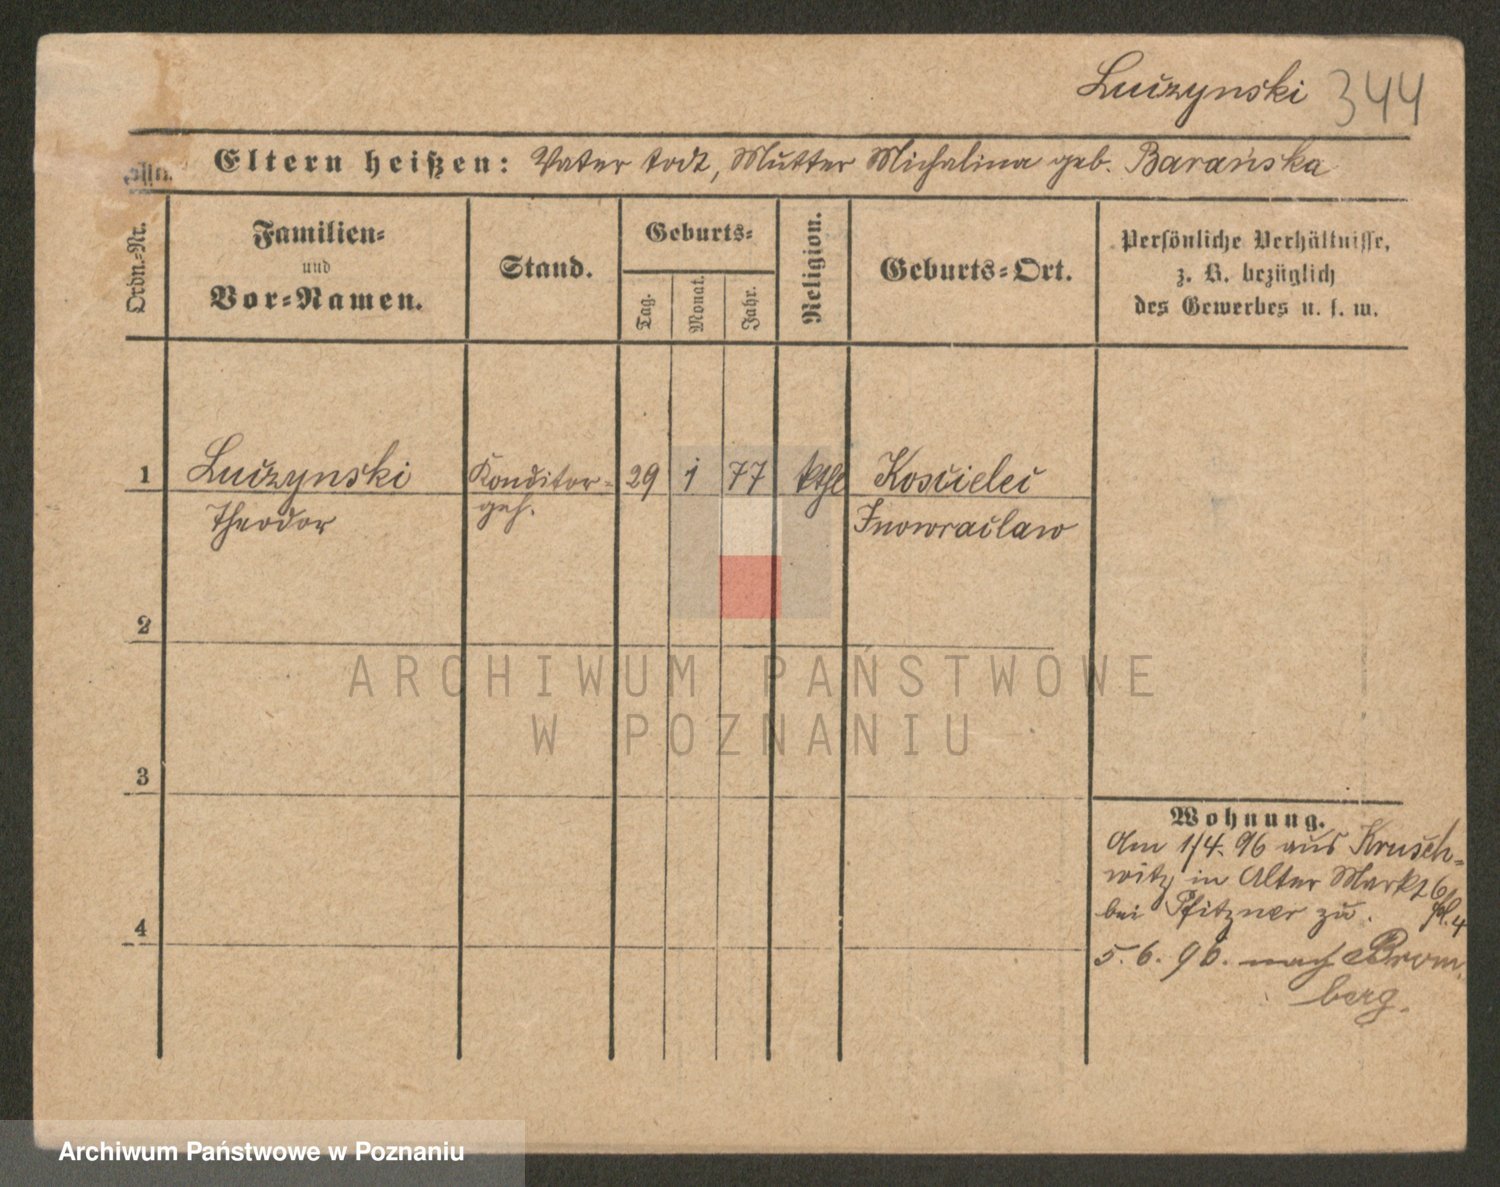 Luczynski 344
Eltern heißen: Vater todt, Mutter Michalina geb. Barańska
Ordn.-Nr.
Familien-
und
Vor-Namen.
Stand.
Geburts-
Tag.
Monat.
Jahr.
Religion.
Geburts-Ort.
Persönliche Verhältnisse,
z. B. bezüglich
des Gewerbes u. s. w.
1 Luczynski Konditor- 29 1 77 kthl Kościelec
Theodor geh. Inowraclaw
2
3
4
Wohnung.
Am 1/4. 96 aus Krusch-
witz in Alter Markt 6
bei Pfitzner zu.
5. 6. 96. nach Brom-
berg.
ARCHIWUM PAŃSTWOWE
W POZNANIU
Archiwum Państwowe w Poznaniu